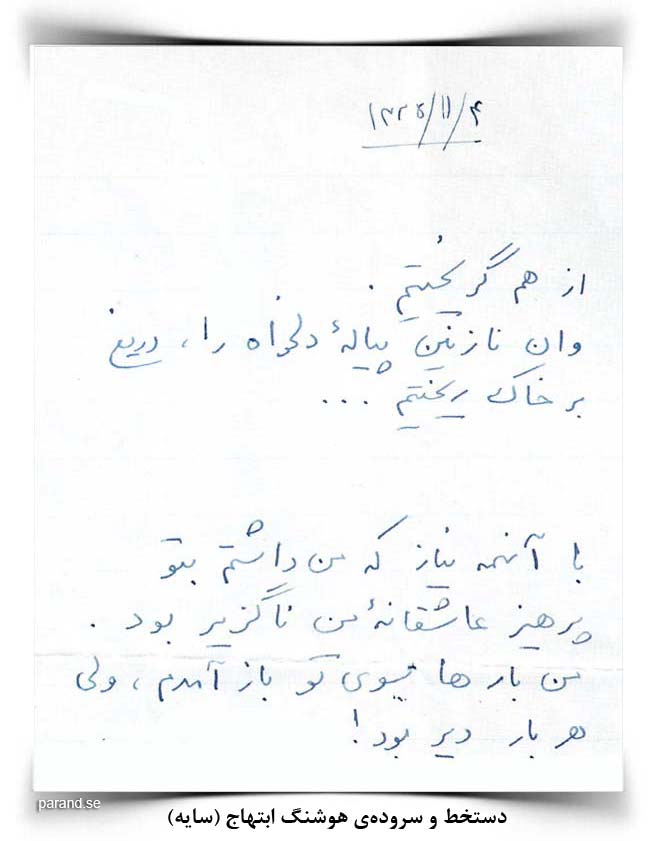 ۱۳۳۵/۱۱/۴
از هم گریختیم .
وان نازنین پیالهٔ دلخواه را ، دریغ
بر خاک ریختیم ...
با آنهمه نیاز که من داشتم بتو
پرهیز عاشقانهٔ من ناگزیر بود .
من بارها بسوی تو باز آمدم ، ولی
هر بار دیر بود !
parand.se
دستخط و سروده‌ی هوشنگ ابتهاج (سایه)